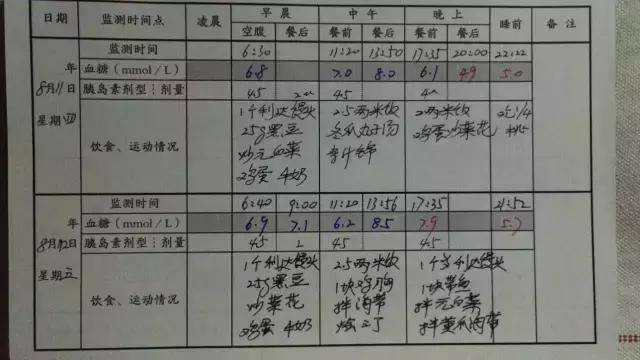 日期 监测时间点 凌晨 早晨 中午 晚上 睡前 备注
空腹 餐后 餐前 餐后 餐前 餐后
监测时间 6:30 11:20 13:50 17:35 20:00 22:22
年 血糖（mmol/L） 6.8 7.0 8.0 6.1 4.9 5.0
8月11日 胰岛素剂型┊剂量 45 45
星期四 饮食、运动情况
1个利达馒头 2.5两米饭 2两米饭
25g黑豆 冬瓜丸子汤 鸡蛋炒菜花
鸡蛋 牛奶
监测时间 6:40 9:00 11:20 13:56 17:35 21:52
年 血糖（mmol/L） 6.9 7.1 6.2 8.5 7.9 5.7
8月12日 胰岛素剂型┊剂量 45 2 45 45
星期五 饮食、运动情况
1个利达馒头 2.5两米饭 利达馒头
25g黑豆 1块鸡胸 1块带鱼
炒菜花
鸡蛋 牛奶